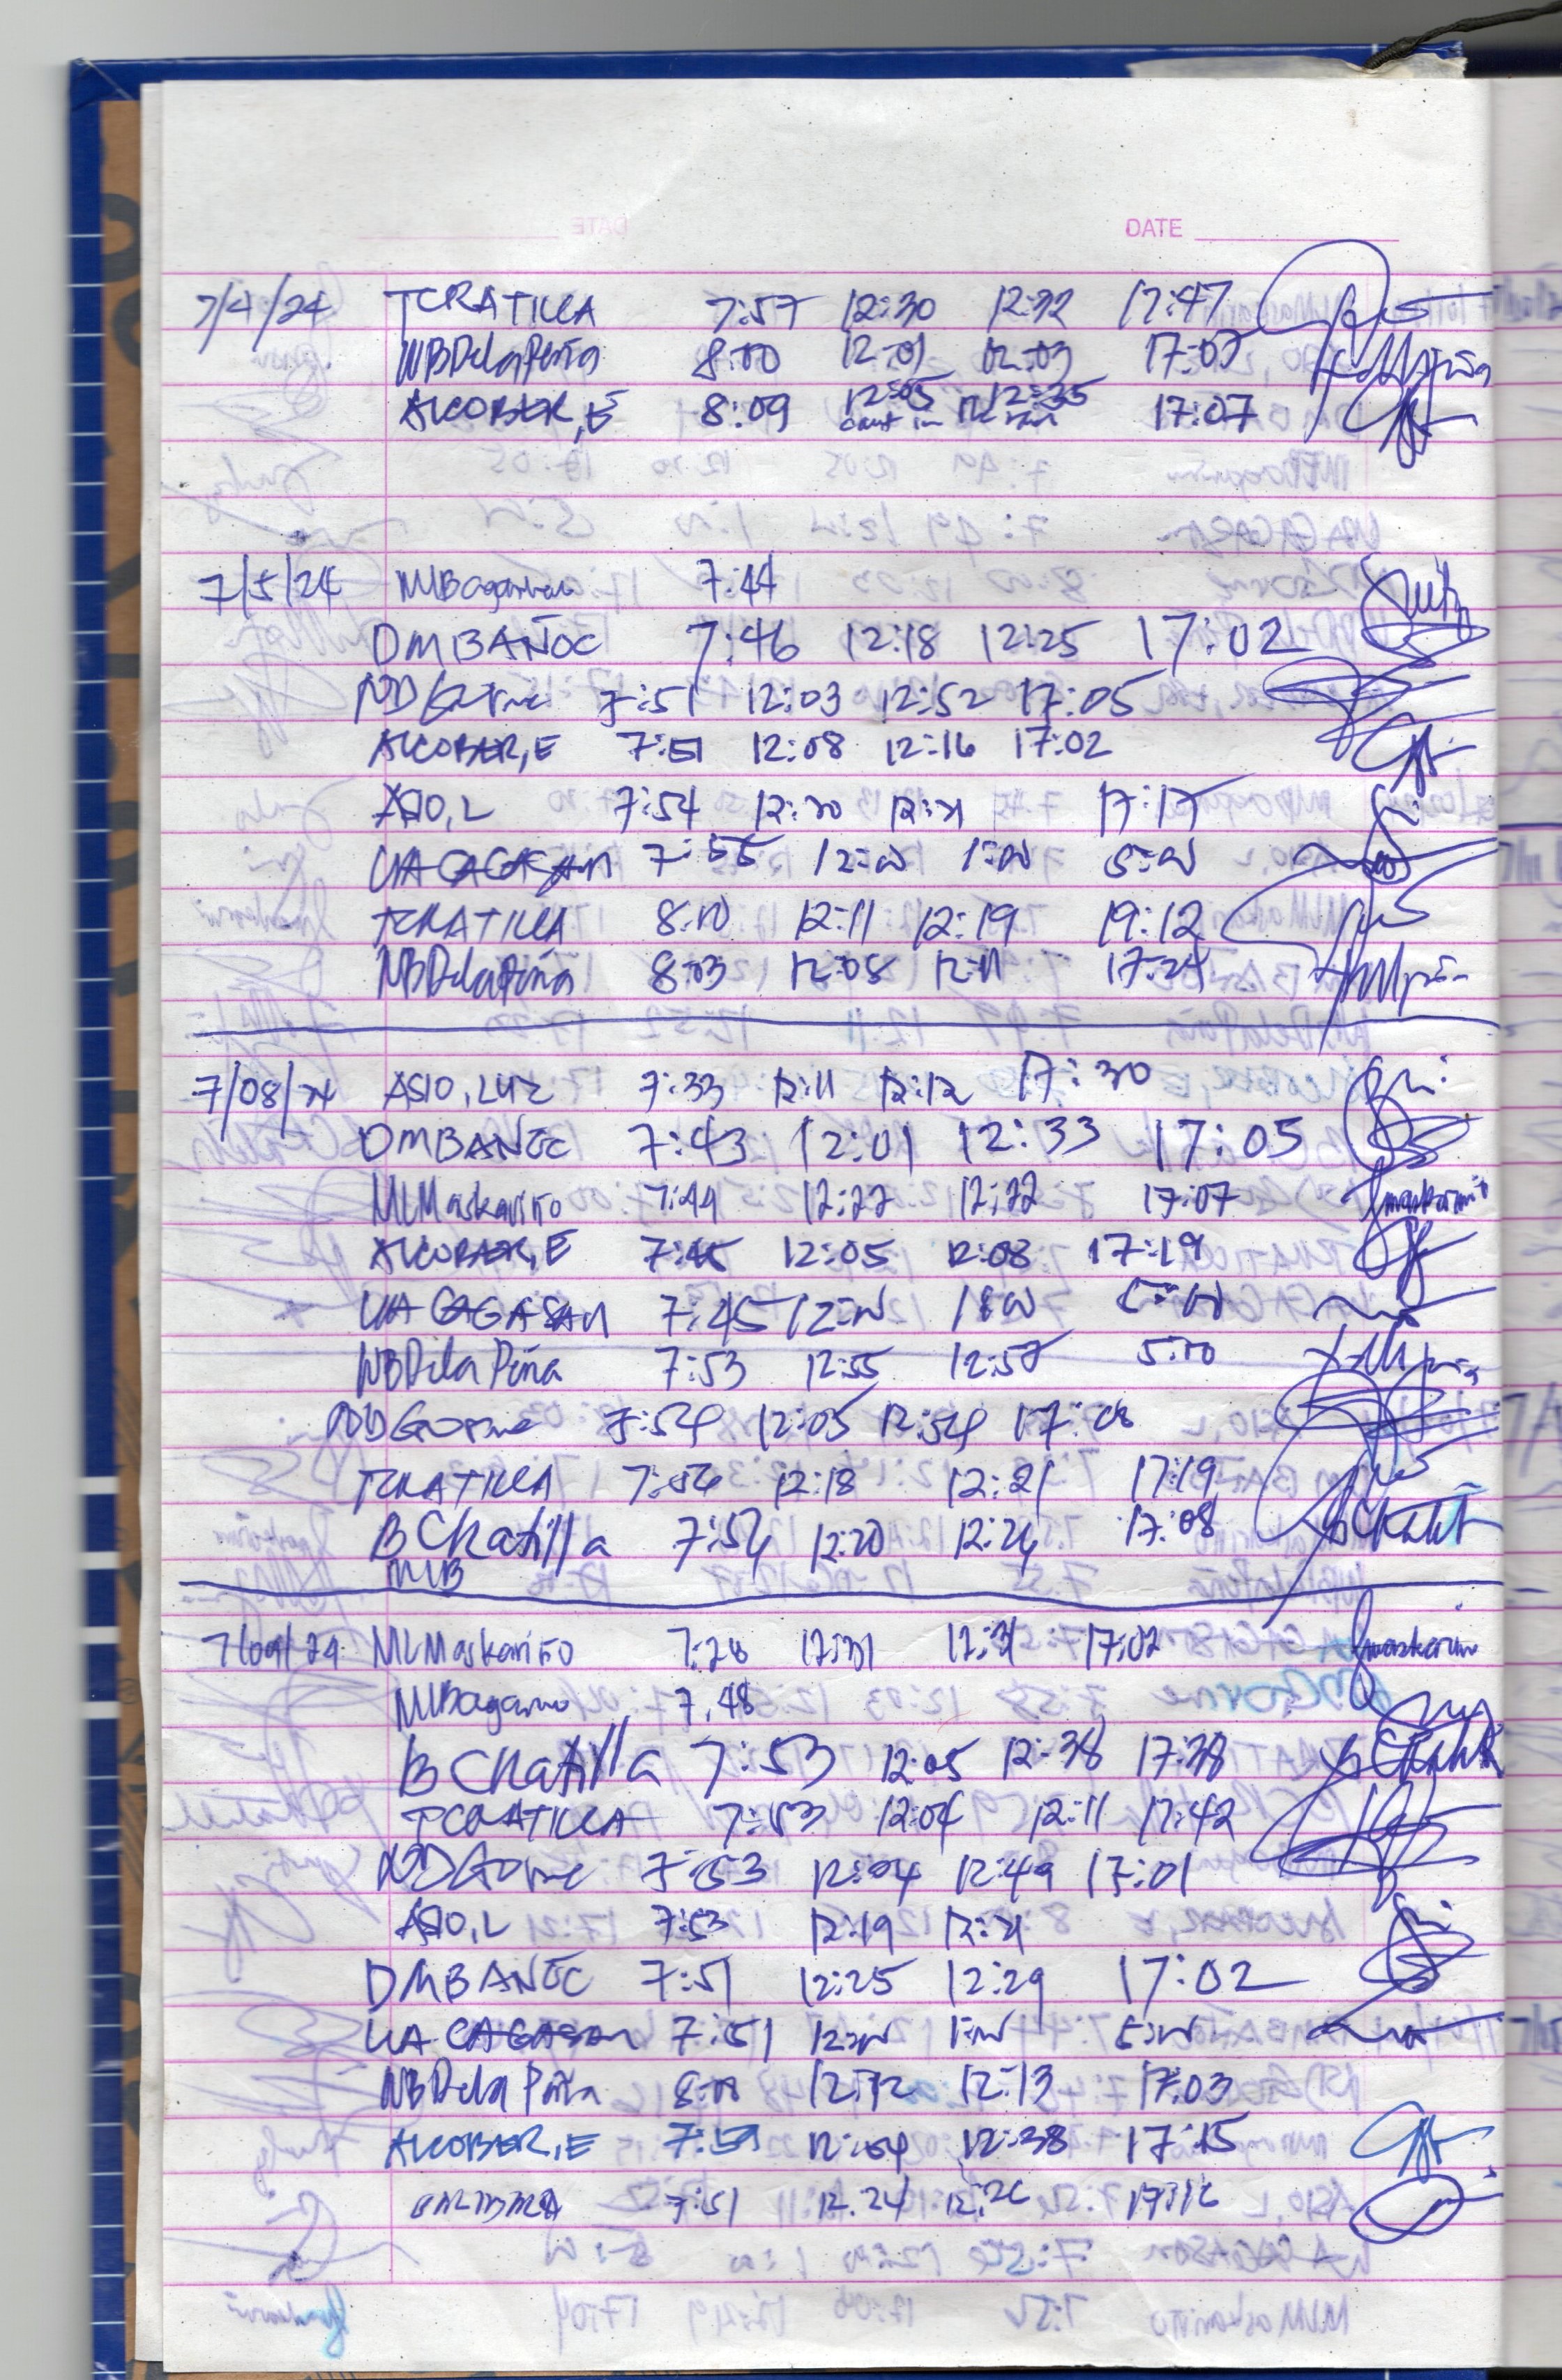 DATE
7/4/24 TCRATILLA 7:57 12:30 12:32 17:47
NBDelaPeña 8:00 12:01 12:03 17:07
ALCOBER, E 8:09 12:05 12:35 17:07
7/5/24 MBagarinao 7:44
DMBAÑOC 7:46 12:18 12:25 17:02
NDGorne 7:51 12:03 12:52 17:05
ALCOBER, E 7:51 12:08 12:16 17:02
ASIO, L 7:54 12:20 12:21 17:17
UACAGASAN 7:55 12:00 1:00 5:00
TCRATILLA 8:00 12:11 12:19 19:12
NBDelaPeña 8:03 12:08 12:11 17:24
7/08/24 ASIO, LUZ 7:33 12:11 12:12 17:30
DMBAÑOC 7:43 12:01 12:33 17:05
MLMaskariño 7:44 12:22 12:22 17:07
ALCOBER, E 7:45 12:05 12:08 17:19
UA CAGASAN 7:45 12:00 1:00 5:00
NBDela Peña 7:53 12:55 12:57 5:00
NDGorne 7:54 12:05 12:54 17:08
TCRATILLA 7:56 12:18 12:21 17:19
BCRatilla 7:56 12:20 12:26 17:08
MLB
7/09/24 MLMaskariño 7:28 12:31 12:31 17:02
MBagarinao 7:48
BCRatilla 7:53 12:05 12:38 17:38
TCRATILLA 7:53 12:04 12:11 17:42
NDGorne 7:53 12:04 12:49 17:01
ASIO, L 7:53 12:19 12:21
DMBAÑOC 7:51 12:25 12:29 17:02
UA CAGASAN 7:51 12:00 1:00 5:00
NBDela Peña 8:00 12:12 12:13 17:03
ALCOBER, E 7:59 12:04 12:38 17:15
7:51 12:24 12:26 17:16